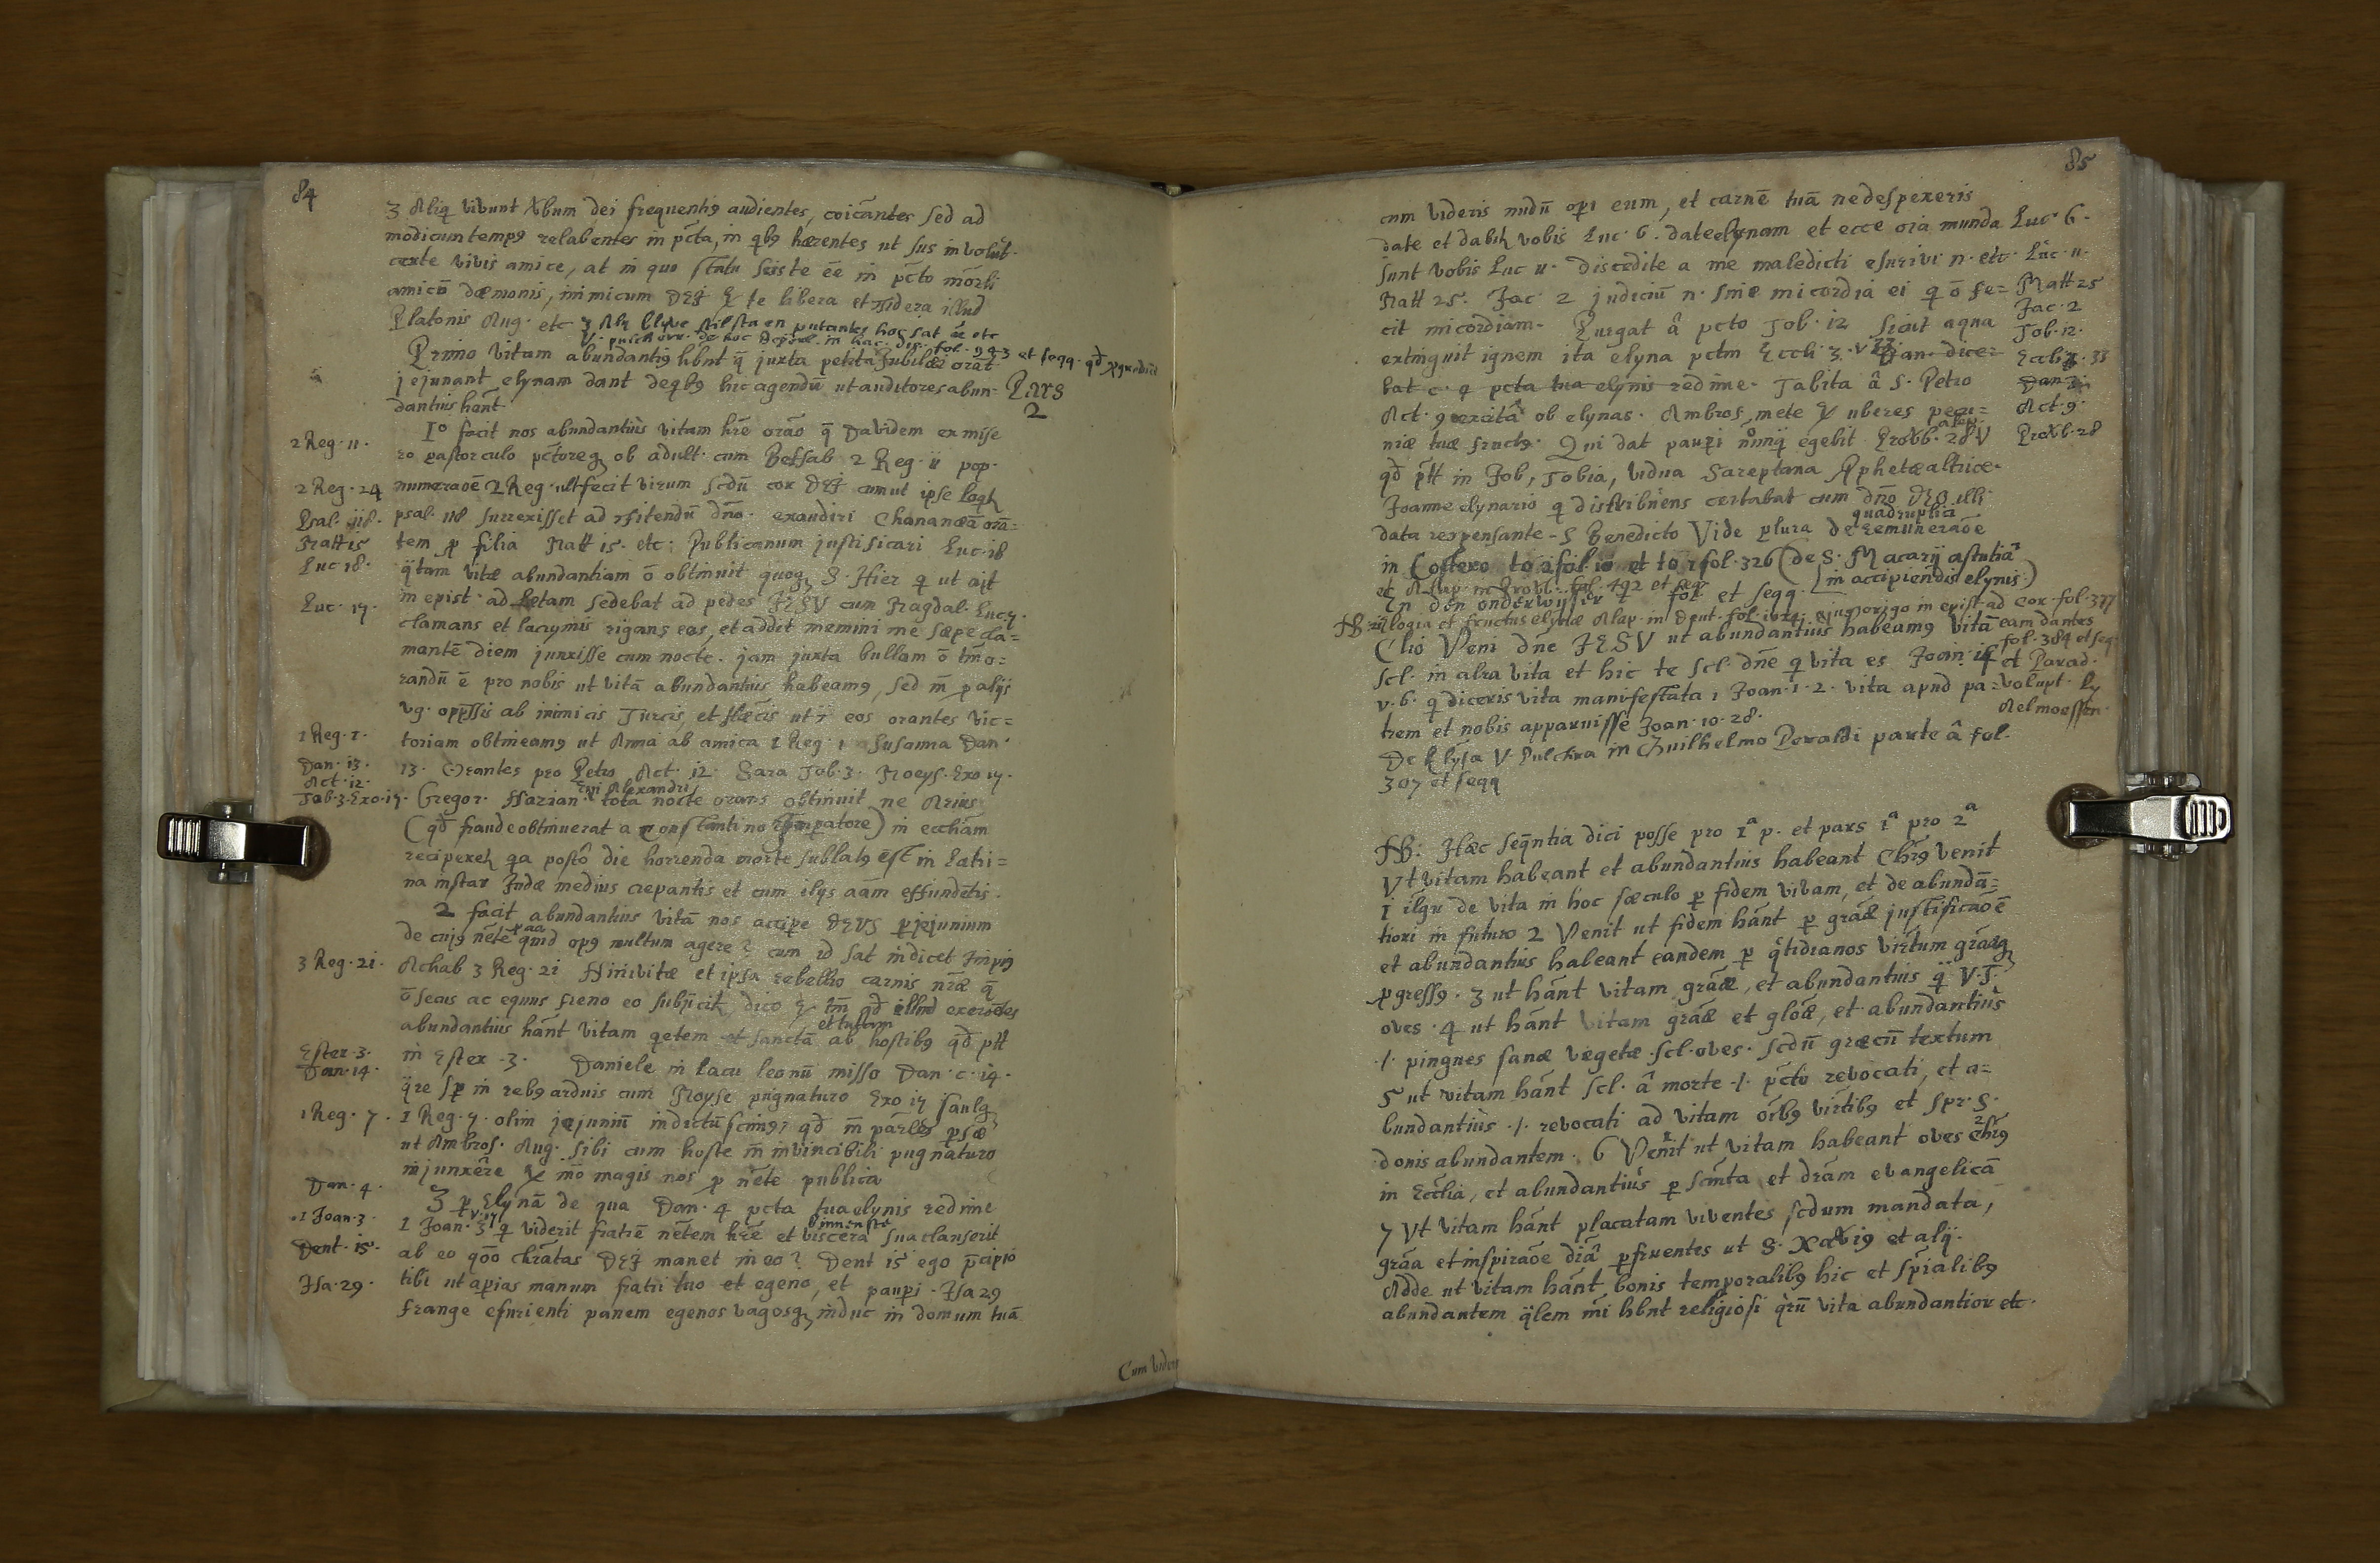 84
3 Aliq vivunt Vbum dei frequentiꝰ audientes, coicantes sed ad
modicum tempꝰ relabentes in pcta, in qbꝰ hærentes ut sus in volut.
certe vivis amice, at in quo statu sciste ēē in pcto morli
amicū dæmonis, inimicum DEI te libera et sidera illud
Platonis Aug. etc
V. pulchra de hoc in hac fol. 243 et seqq.
Primo vitam abundantiꝰ hbnt q̄ juxta petita Jubilæi orāt
jejunant elynam dant deqbꝰ hic agendū ut auditores abun= Pars
dantius hant. 2
2 Reg. 11. Iº facit nos abundantiùs vitam hrē orāo q̄ Davidem ex mise
ro pastorculo ob adult. cum Betsab 2 Reg. ii pop.
2 Reg. 24 numeraōē 2 Reg. ult fecit virum scdū cor DEI cum ut ipse
Psal. 118. psal. 118 surrexisset ad fitendū dno. exaudiri Chananæā orā=
Matt 15 tem p filia Matt 15. etc: Publicanum justificari Luc. 18
Luc 18. q̈tam vitæ abundantiam ō obtinuit quoqꝫ S. Hier q ut ait
Luc. 17. in epist. ad Letam sedebat ad pedes JESV cum Magdal. Luc 7.
clamans et lacrymis rigans eos, et addit memini me sæpe cla=
mantē diem junxisse cum nocte. jam juxta bullam ō tm̄ o=
randū ē pro nobis ut vitā abundantius habeamꝰ, sed m̄ p alijs
vg. oppssis ab inimicis Turcis, et Hæcis ut eos orantes vic=
1 Reg. 1. toriam obtineamꝰ ut Anna ab amica 1 Reg. 1 Susanna Dan.
Dan. 13. 13. Orantes pro Petro Act. 12. Sara Tob. 3. Moeys. Exo 17.
Act. 12.
Tob. 3. Exo. 17. Gregor. Nazian. tota nocte orans obtinuit ne Arius
Alexandri
(qđ fraude obtinuerat a Constantino Impatore) in eccliam
reciperetꝫ qa posto die horrenda morte sublatꝰ est in Latri=
na instar Judæ medius crepantis et cum ilijs aam effundētis.
2 facit abundantius vitā nos accipe DEVS p jejunium
de cujꝰ nēte quid opꝰ multum agere? cum id sat indicet Impiꝰ
3 Reg. 21. Achab 3 Reg. 21 Ninivitæ et ipsa rebellio carnis nræ q̄
ō secus ac equus freno eo subjicit, dico tm̄ qđ illud exercētes
abundantius hānt vitam qetem et sanctā ab hostibꝰ qđ ptt
et tutam
Ester. 3. in Ester. 3. Daniele in lacu leonū misso Dan. c. 14.
Dan. 14.
q̈re sp in rebꝰ arduis cum Moyse pugnaturo Exo 17 saulꝫ
1 Reg. 7. 1 Reg. 7. olim jejuniū indictū scimꝰ, qđ m̄ pæles psæ
ut Ambros. Aug. sibi cum hoste m̄ invincibili pugnaturo
injunxere imo magis nos p nēte publica
Dan. 4. 3 p Elynā de qua Dan. 4 pcta tua elynis redime
1 Joan. 3. 1 Joan. 3 v. 17 q viderit fratrē nētem hrē et viscera sua clauserit
Deut. 15. ab eo qōō chratas DEI manet in eo? Deut 15 ego pcipio
Isa. 29. tibi ut apias manum fratri tuo et egeno, et paupi. Isa 29
frange esurienti panem egenos vagosqꝫ induc in domum tuā
Cum videris
85
cum videris nudū opi eum, et carnē tuā ne despexeris
date et dabitꝫ vobis Luc. 6. date elynam et ecce oia munda Luc. 6.
sunt vobis Luc 11. Discedite a me maledicti esurivi n. etc. Luc. 11.
Matt 25. Jac. 2 judiciū n. sine micordia ei q ō fe= Matt 25
cit micordiam. Purgat â pcto Tob. 12 Sicut aqua Jac. 2
Tob. 12.
extinguit ignem ita elyna pctm Eccli 3. v 33 Dan. dice= Eccli 3. 33
bat c. 4 pcta tua elynis redime. Tabita â S. Petro Dan
Act. 9 excitā ob elynas. Ambros, mete uberes pecu= Act. 9.
niæ tuæ fructꝰ. Qui dat paupi nunq̈ egebit Provb. 28 Provb. 28
qđ ptt in Job, Tobia, vidua Sareptana Pphetæ altrice.
Joanne elynario q distribuens certabat cum dno DEO illi
data respensante. S Benedicto Vide plura de remuneraōe
quadruplici
in Costero to 2 fol. 10 et to 1 fol. 326 (de S. Macarij astutiâ
in accipiendis elynis.)
et A Lap. in Provb. fol. 492 et seqq.
In den onderwijser fol. et seqq.
NB. Elogia et fructus elynæ A Lap. in Deut. fol. 1024. ejusq origo in epist. ad Cor. fol. 377
Clio Veni dne JESV ut abundantius habeamꝰ vitā eam dantes
scl. in altra vita et hic te scl. dnē q vita es Joan. 14 fol. 384 et seq
v. 6. q diceris vita manifestata 1 Joan. 1. 2. vita apud pa= et Parad.
trem et nobis apparuisse Joan. 10. 28. volupt.
Aelmoessen.
De Elysa V. Pulchra in Guilhelmo Peraldi parte â fol.
307 et seqq
NB: Hæc seqntia dici posse pro 1ª p. et pars 1ª pro 2ª
Vt vitam habeant et abundantius habeant Chrꝰ venit
1 ilgr de vita in hoc sæculo p fidem vivam, et de abundā=
tiori in futuro 2 Venit ut fidem hānt p grāæ justificaōē
et abundantius habeant eandem p q̊tidianos virtum grāꝫ
pgressꝰ. 3 ut hānt vitam grāæ, et abundantius q̈ V. T.
oves. 4 ut hānt vitam grāæ et gloæ, et abundantiùs
.1. pingues sanæ vegetæ scl. oves. scdū græcū textum
5 ut vitam hānt scl. â morte .1. pcto revocati, et a=
bundantiùs .1. revocati ad vitam oibꝰ virtibꝰ et spr. S.
donis abundantem. 6 Venit ut vitam habeant oves chrꝰ
in Ecclia, et abundantiùs p scmta et dram evangelicā
7 Vt vitam hānt placatam viventes scdum mandata,
grāa et inspiraōe diâ pfruentes ut S. Xavꝰ et alij.
Adde ut vitam hānt bonis temporalibꝰ hic et spialibꝰ
abundantem q̈lem mi hbnt religiosi q̊rū vita abundantior etc.